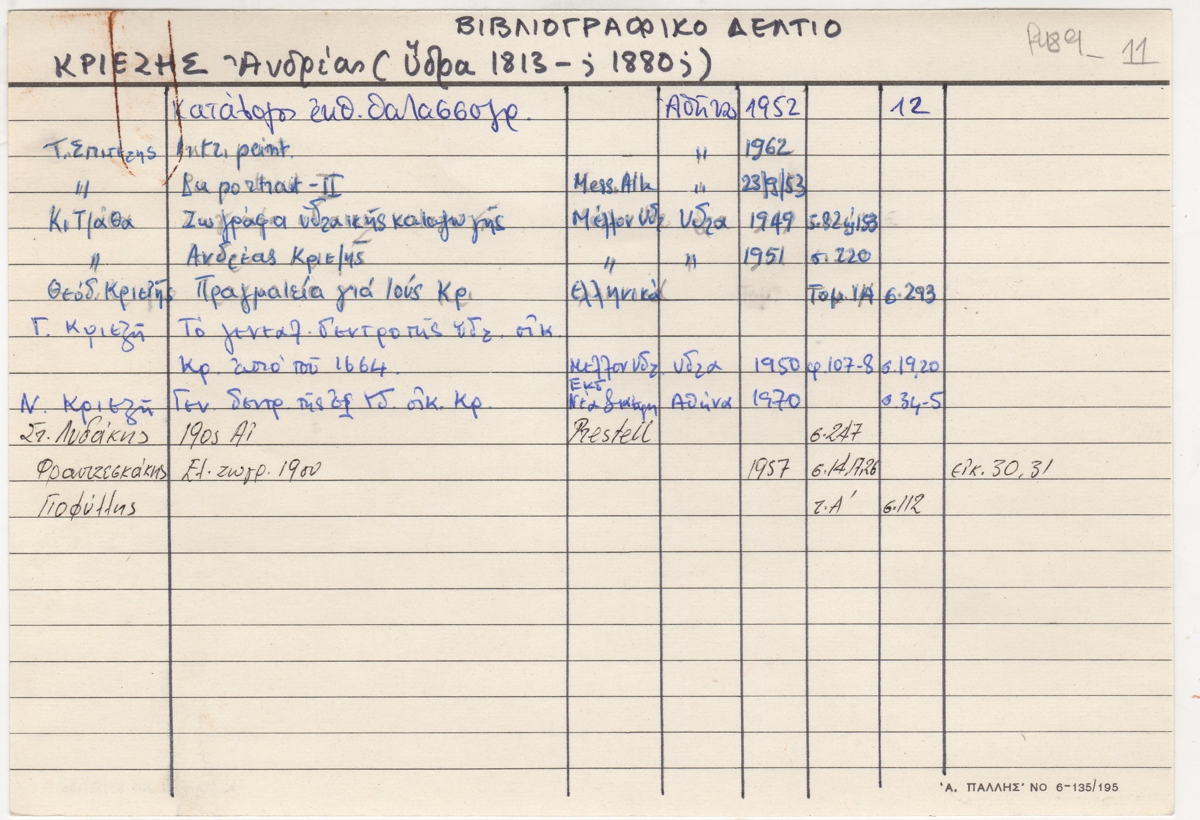 ΒΙΒΛΙΟΓΡΑΦΙΚΟ ΔΕΛΤΙΟ
11
ΚΡΙΕΖΗΣ Ἀνδρέας (Ὕδρα 1813 - ; 1880 ;)
Κατάλογος ἐκθ. θαλασσογρ. Αθήνα 1952 12
Τ. Σπιτέρης peint. " 1962
" Du portrait - II Mess. Ath. " 53
Κ. Τ/άθα Ζωγράφοι ὑδραικῆς καταγωγῆς Μέλλον Υδρ. Υδρα 1949
" Ανδρέας Κριεζῆς " " 1951 σ. 220
Θεόδ. Κριεζῆς Πραγματεία γιά τούς Κρ. Ελληνικά Τομ. ΙΑ σ. 293
Γ. Κριεζῆ Τό γενεαλ. δεντρο τῆς ὑδρ. οἰκ.
Κρ. ἀπό τοῦ 1664. Μελλον Υδρ. υδρα 1950 φ. 107-8 σ. 19,20
Ν. Κριεζῆ Γεν. δεντρ. τῆς Υδ. οἰκ. Κρ. Εκδ. Αθήνα 1970 σ. 34-5
Στ. Λυδάκης 19ος Αἰ Prestell σ. 247
Φραντζεσκάκης Ελ. ζωγρ. 19ου 1957 εἰκ. 30, 31
Γιοφύλλης τ. Α' σ. 112
'Α. ΠΑΛΛΗΣ' ΝΟ 6-135/195